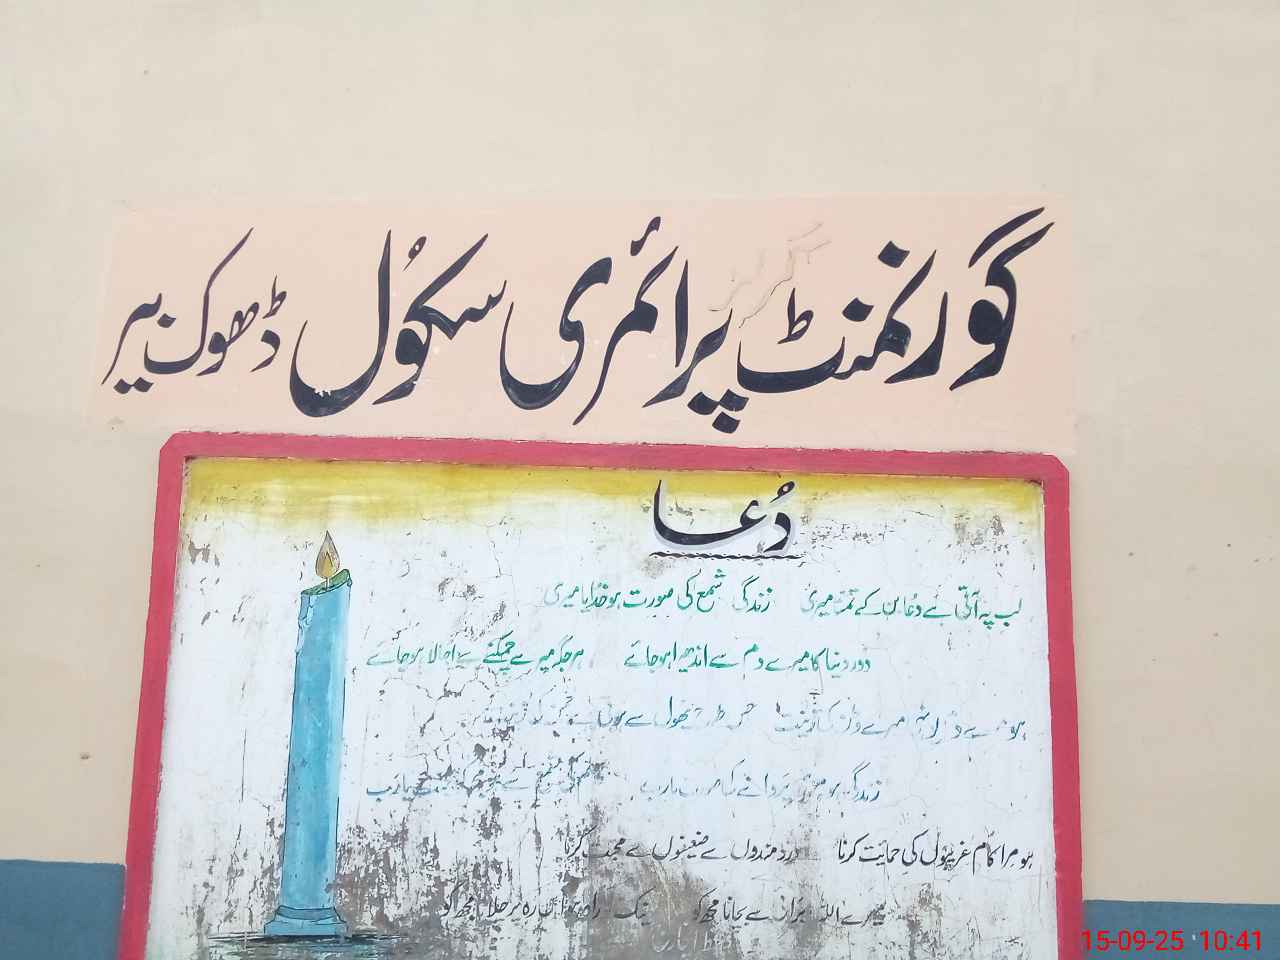 گورنمنٹ پرائمری سکُول ڈھوک بیر
دُعا
لب پہ آتی ہے دُعا بن کے تمنا میری زندگی شمع کی صورت ہو خدُایا میری
دور دنیا کا میرے دم سے اندھیرا ہو جائے ہر جگہ میرے چمکنے سے اجالا ہو جائے
ہو میرے دم سے میرے وطن کی زینت جس طرح پھول سے ہوتی ہے چمن کی زینت
زندگی ہو پروانے کی صورت یارب علم کی شمع سے ہو یارب
ہو مرا کام غریبوں کی حمایت کرنا دردمندوں سے ضعیفوں سے محبت کرنا
میرے اللہ برائی سے بچانا مجھ کو نیک جو راہ ہو اس رہ پر چلانا مجھ کو
15-09-25 10:41